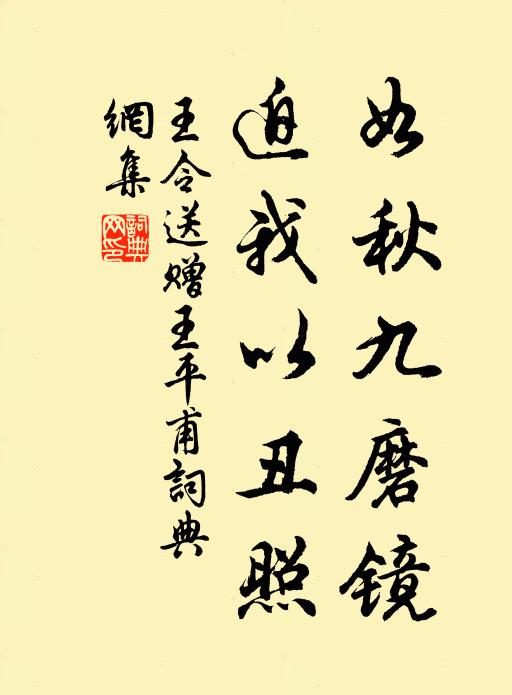 如秋九磨镜
迫我以丑照
王令送赠王平甫詞典
網集
詞典
网印